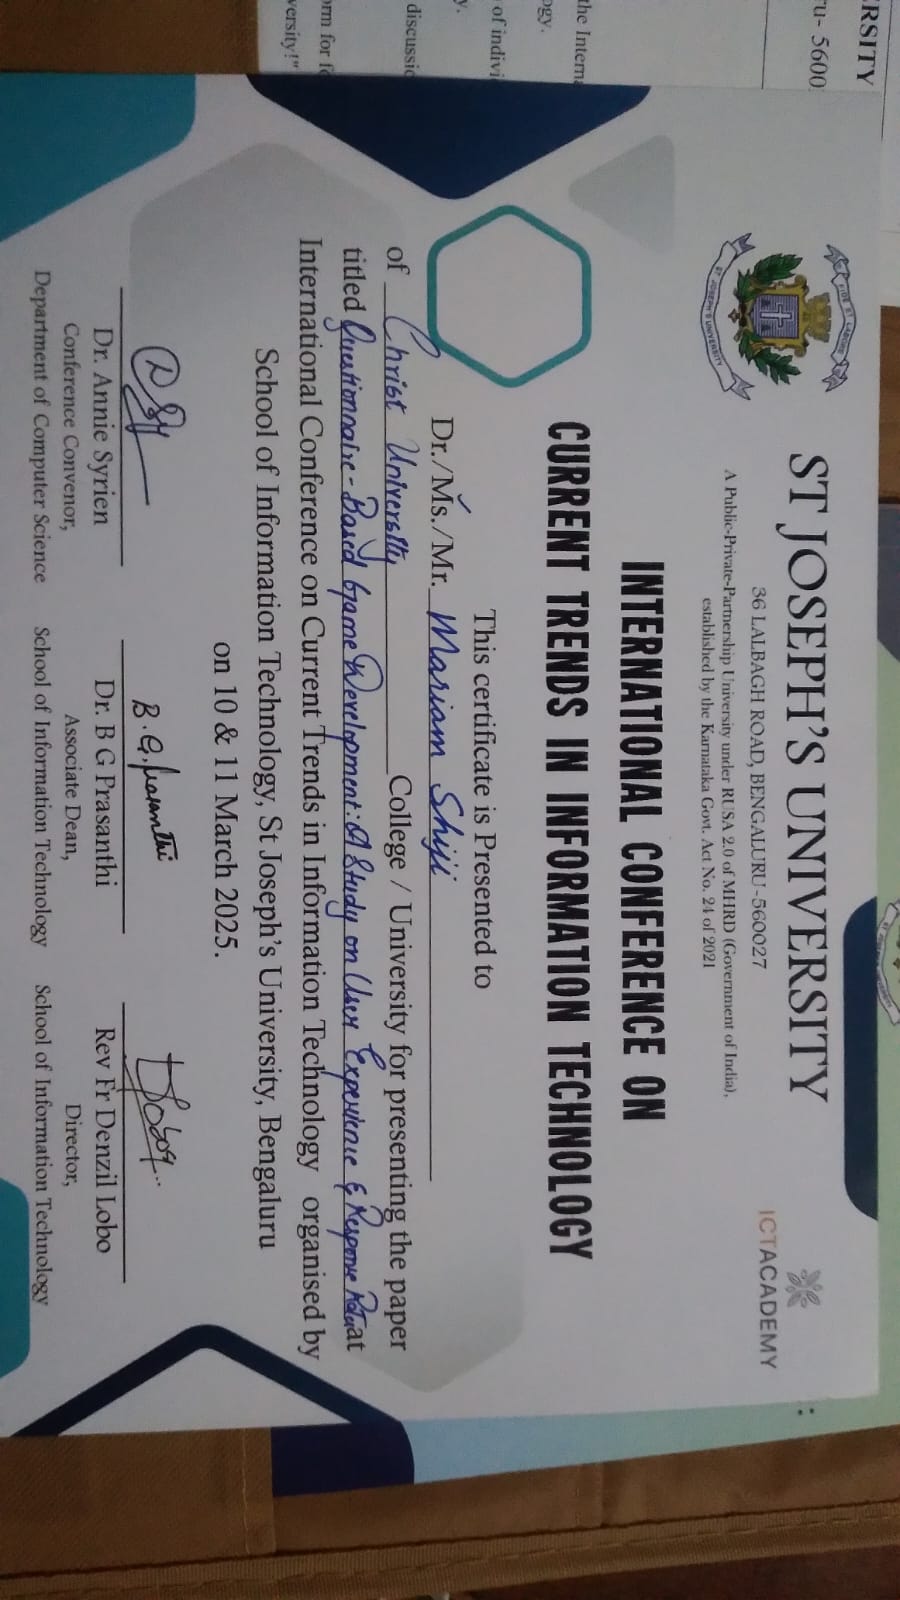 ST JOSEPH'S UNIVERSITY
36 LALBAGH ROAD, BENGALURU - 560027
A Public-Private-Partnership University under RUSA 2.0 of MHRD (Government of India),
established by the Karnataka Govt. Act No. 24 of 2021
ICTACADEMY
ST JOSEPH'S UNIVERSITY
INTERNATIONAL CONFERENCE ON
CURRENT TRENDS IN INFORMATION TECHNOLOGY
This certificate is Presented to
Dr./Ms./Mr. Mariam Shiji
of Christ University College / University for presenting the paper
titled Questionnaire-Based Game Development: A Study on User Experience & Response Rate at
International Conference on Current Trends in Information Technology organised by
School of Information Technology, St Joseph's University, Bengaluru
on 10 & 11 March 2025.
B.G. Prasanthi
Dr. Annie Syrien
Conference Convenor,
Department of Computer Science
Dr. B G Prasanthi
Associate Dean,
School of Information Technology
Rev Fr Denzil Lobo
Director,
School of Information Technology
ERSITY
ru- 5600
the Interna
ogy.
of indivi
y.
discussio
orm for fo
versity!"